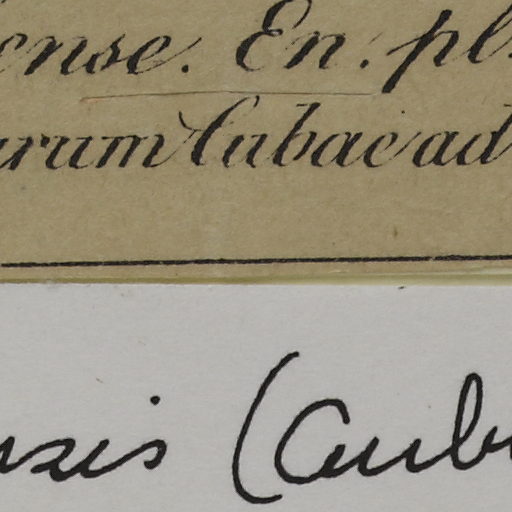 ense. En. pl.
rum Cubae ad
nsis (Aub